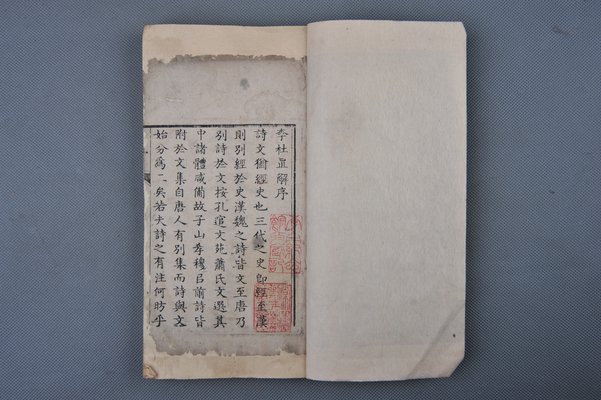 李杜直解序
詩文猶經史也三代之史即經至漢
則別經於史漢魏之詩皆文至唐乃
別詩於文按孔逭文苑蕭氏文選其
中諸體咸備故子山孝穆召蕳詩皆
附於文集自唐人有別集而詩與文
始分為二矣若夫詩之有注何昉乎